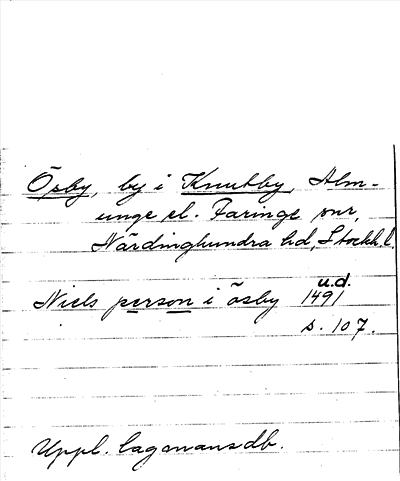 Ösby, by i Knutby, Alm-
unge el. Faringe snr,
Närdinghundra hd, Stockh. l.
u.d.
Niels person i ösby 1491
s. 107.
Uppl. lagmansdb.